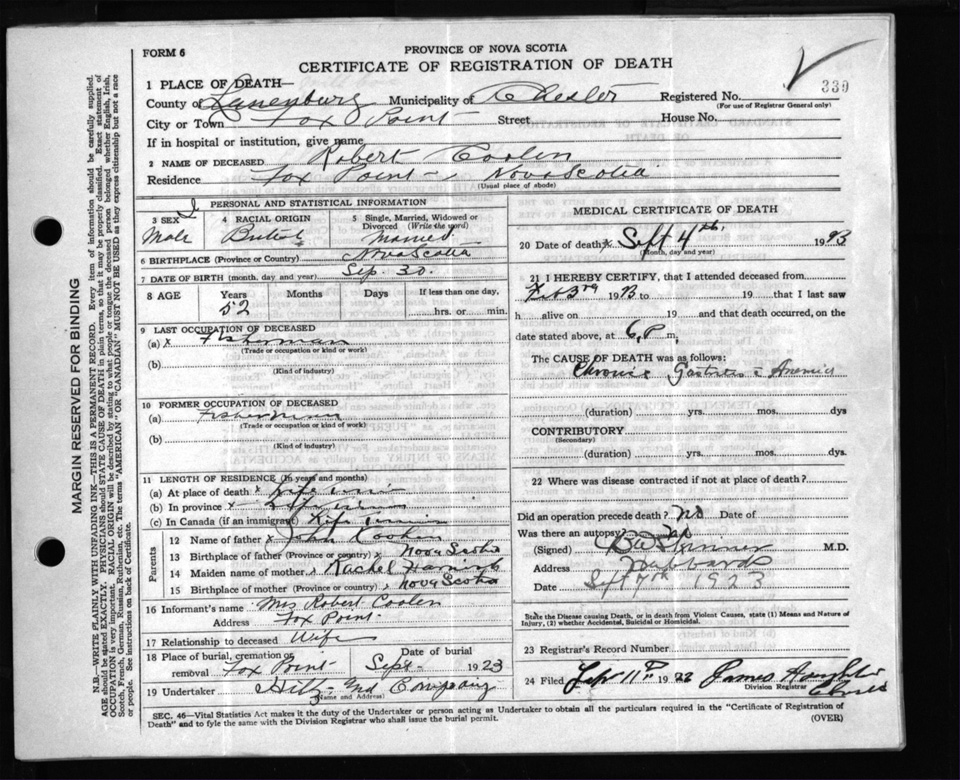 FORM 6
PROVINCE OF NOVA SCOTIA
CERTIFICATE OF REGISTRATION OF DEATH
339
1 PLACE OF DEATH—
County of Lunenburg Municipality of Chester Registered No.
(For use of Registrar General only)
City or Town Fox Point Street House No.
If in hospital or institution, give name
2 NAME OF DECEASED Robert Coolen
Residence Fox Point, Nova Scotia
(Usual place of abode)
MARGIN RESERVED FOR BINDING
N.B.—WRITE PLAINLY WITH UNFADING INK—THIS IS A PERMANENT RECORD. Every item of information should be carefully supplied.
AGE should be stated EXACTLY. PHYSICIANS should STATE CAUSE OF DEATH in plain terms, so that it may be properly classified. Exact statement of
OCCUPATION is very important. RACIAL ORIGIN will be described by stating to what people or tongue the deceased person belonged whether English, Irish,
Scotch, French, German, Russian, Ruthenian, etc. The terms "AMERICAN" OR "CANADIAN" MUST NOT BE USED as they express citizenship but not a race
or people. See instructions on back of Certificate.
PERSONAL AND STATISTICAL INFORMATION
3 SEX
Male
4 RACIAL ORIGIN
5 Single, Married, Widowed or
Divorced (Write the word)
Married
6 BIRTHPLACE (Province or Country) Nova Scotia
7 DATE OF BIRTH (month, day, and year) Sep. 30.
8 AGE
Years
52
Months
Days
If less than one day,
hrs. or min.
9 LAST OCCUPATION OF DECEASED
(a) x Fisherman
(Trade or occupation or kind or work)
(b)
(Kind of industry)
10 FORMER OCCUPATION OF DECEASED
(a) Fisherman
(Trade or occupation or kind of work)
(b)
(Kind of industry)
11 LENGTH OF RESIDENCE (In years and months)
(a) At place of death x Life
(b) In province x Life
(c) In Canada (if an immigrant) Life
Parents
12 Name of father x John Coolen
13 Birthplace of father (Province or country) x Nova Scotia
14 Maiden name of mother Rachel
15 Birthplace of mother (Province or country) Nova Scotia
16 Informant's name Mrs Robert Coolen
Address Fox Point
17 Relationship to deceased Wife
18 Place of burial, cremation or
removal Fox Point
Date of burial
Sept 1923
19 Undertaker Company
(Name and Address)
MEDICAL CERTIFICATE OF DEATH
20 Date of death x Sept 4th, 1923
(Month, day and year)
21 I HEREBY CERTIFY, that I attended deceased from
to 19 that I last saw
h alive on 19 and that death occurred, on the
date stated above, at 6 P m.
The CAUSE OF DEATH was as follows:
Chronic Gastritis Anemia
(duration) yrs. mos. dys
CONTRIBUTORY
(Secondary)
(duration) yrs. mos. dys.
22 Where was disease contracted if not at place of death?
Did an operation precede death? No Date of
Was there an autopsy?
(Signed) M.D.
Address Hubbards
Date Sept 7th 1923
State the Disease causing Death, or in death from Violent Causes, state (1) Means and Nature of
Injury, (2) whether Accidental, Suicidal or Homicidal.
23 Registrar's Record Number
24 Filed 11th James
Division Registrar
Chester
SEC. 46—Vital Statistics Act makes it the duty of the Undertaker or person acting as Undertaker to obtain all the particulars required in the "Certificate of Registration of
Death" and to fyle the same with the Division Registrar who shall issue the burial permit.
(OVER)